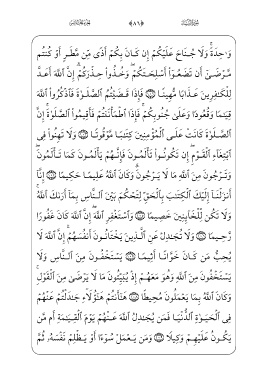 ﴿٨٦﴾
وَٰحِدَةً وَلَا جُنَاحَ عَلَيْكُمْ إِن كَانَ بِكُمْ أَذًى مِّن مَّطَرٍ أَوْ كُنتُم
مَّرْضَىٰٓ أَن تَضَعُوٓا۟ أَسْلِحَتَكُمْ وَخُذُوا۟ حِذْرَكُمْ إِنَّ ٱللَّهَ أَعَدَّ
لِلْكَٰفِرِينَ عَذَابًا مُّهِينًا ﴿١٠٢﴾ فَإِذَا قَضَيْتُمُ ٱلصَّلَوٰةَ فَٱذْكُرُوا۟ ٱللَّهَ
قِيَٰمًا وَقُعُودًا وَعَلَىٰ جُنُوبِكُمْ فَإِذَا ٱطْمَأْنَنتُمْ فَأَقِيمُوا۟ ٱلصَّلَوٰةَ إِنَّ
ٱلصَّلَوٰةَ كَانَتْ عَلَى ٱلْمُؤْمِنِينَ كِتَٰبًا مَّوْقُوتًا ﴿١٠٣﴾ وَلَا تَهِنُوا۟ فِى
ٱبْتِغَآءِ ٱلْقَوْمِ إِن تَكُونُوا۟ تَأْلَمُونَ فَإِنَّهُمْ يَأْلَمُونَ كَمَا تَأْلَمُونَ
وَتَرْجُونَ مِنَ ٱللَّهِ مَا لَا يَرْجُونَ وَكَانَ ٱللَّهُ عَلِيمًا حَكِيمًا ﴿١٠٤﴾ إِنَّآ
أَنزَلْنَآ إِلَيْكَ ٱلْكِتَٰبَ بِٱلْحَقِّ لِتَحْكُمَ بَيْنَ ٱلنَّاسِ بِمَآ أَرَىٰكَ ٱللَّهُ
وَلَا تَكُن لِّلْخَآئِنِينَ خَصِيمًا ﴿١٠٥﴾ وَٱسْتَغْفِرِ ٱللَّهَ إِنَّ ٱللَّهَ كَانَ غَفُورًا
رَّحِيمًا ﴿١٠٦﴾ وَلَا تُجَٰدِلْ عَنِ ٱلَّذِينَ يَخْتَانُونَ أَنفُسَهُمْ إِنَّ ٱللَّهَ لَا
يُحِبُّ مَن كَانَ خَوَّانًا أَثِيمًا ﴿١٠٧﴾ يَسْتَخْفُونَ مِنَ ٱلنَّاسِ وَلَا
يَسْتَخْفُونَ مِنَ ٱللَّهِ وَهُوَ مَعَهُمْ إِذْ يُبَيِّتُونَ مَا لَا يَرْضَىٰ مِنَ ٱلْقَوْلِ
وَكَانَ ٱللَّهُ بِمَا يَعْمَلُونَ مُحِيطًا ﴿١٠٨﴾ هَٰٓأَنتُمْ هَٰٓؤُلَآءِ جَٰدَلْتُمْ عَنْهُمْ
فِى ٱلْحَيَوٰةِ ٱلدُّنْيَا فَمَن يُجَٰدِلُ ٱللَّهَ عَنْهُمْ يَوْمَ ٱلْقِيَٰمَةِ أَم مَّن
يَكُونُ عَلَيْهِمْ وَكِيلًا ﴿١٠٩﴾ وَمَن يَعْمَلْ سُوٓءًا أَوْ يَظْلِمْ نَفْسَهُۥ ثُمَّ